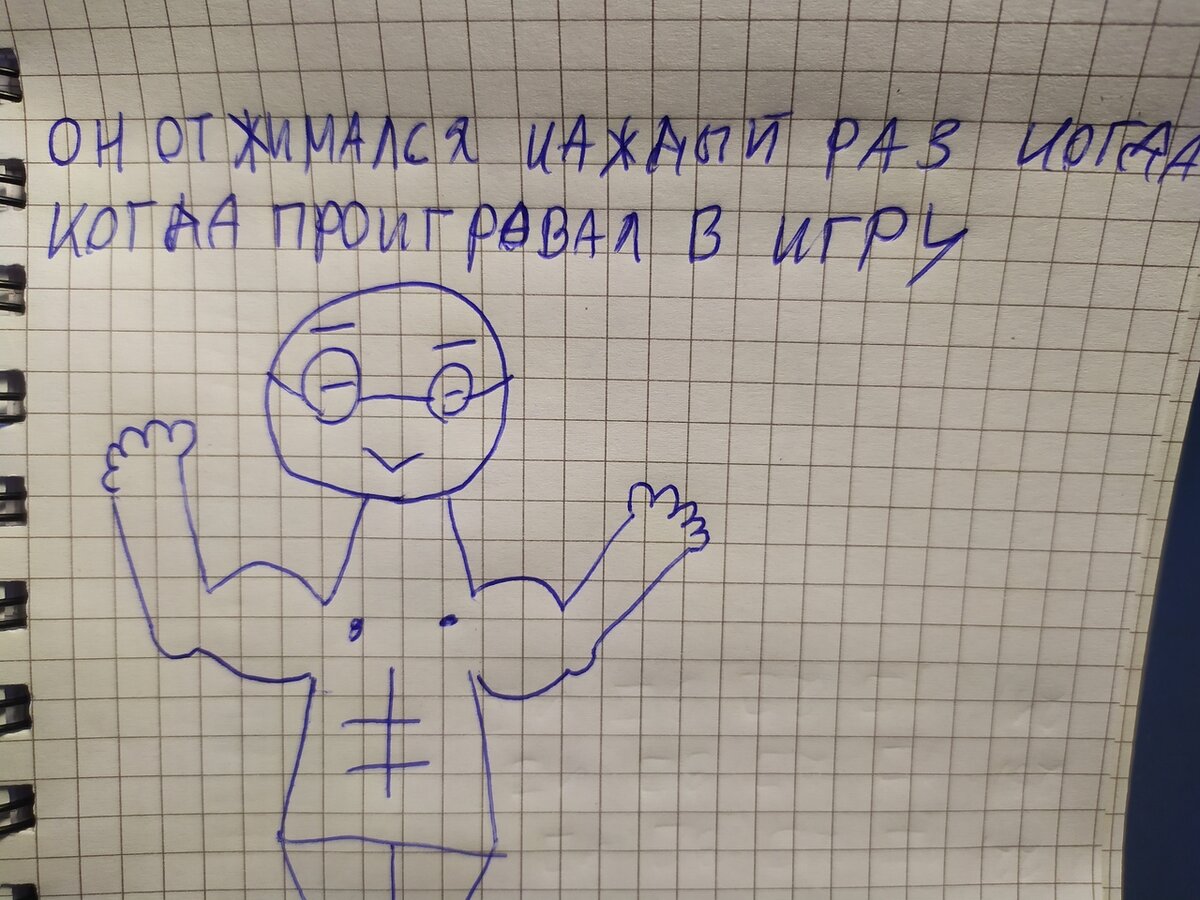 ОН ОТЖИМАЛСЯ КАЖДЫЙ РАЗ КОГДА
КОГДА ПРОИГРАВАЛ В ИГРУ